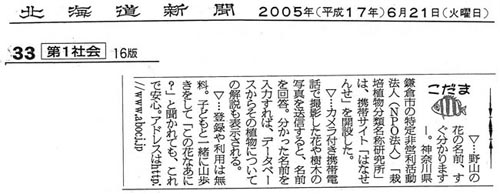 北海道新聞
2005年(平成17年)6月21日(火曜日)
33 第1社会 16版
こだま
▽…野山の
花の名前、す
ぐ分かります
―。神奈川県
鎌倉市の特定非営利活動
法人(NPO法人)「栽
培植物分類名称研究所」
は、携帯サイト「はなせ
んせ」を開設した。
▽…カメラ付き携帯電
話で撮影した花や樹木の
写真を送信すると、名前
を回答。分かった名前を
入力すれば、データベー
スからその植物について
の解説も表示される。
▽…登録や利用は無
料。子どもと一緒に山歩
きをして「この花なあに
?」と聞かれても、これ
で安心。アドレスはhttp:
//www.aboci.jp